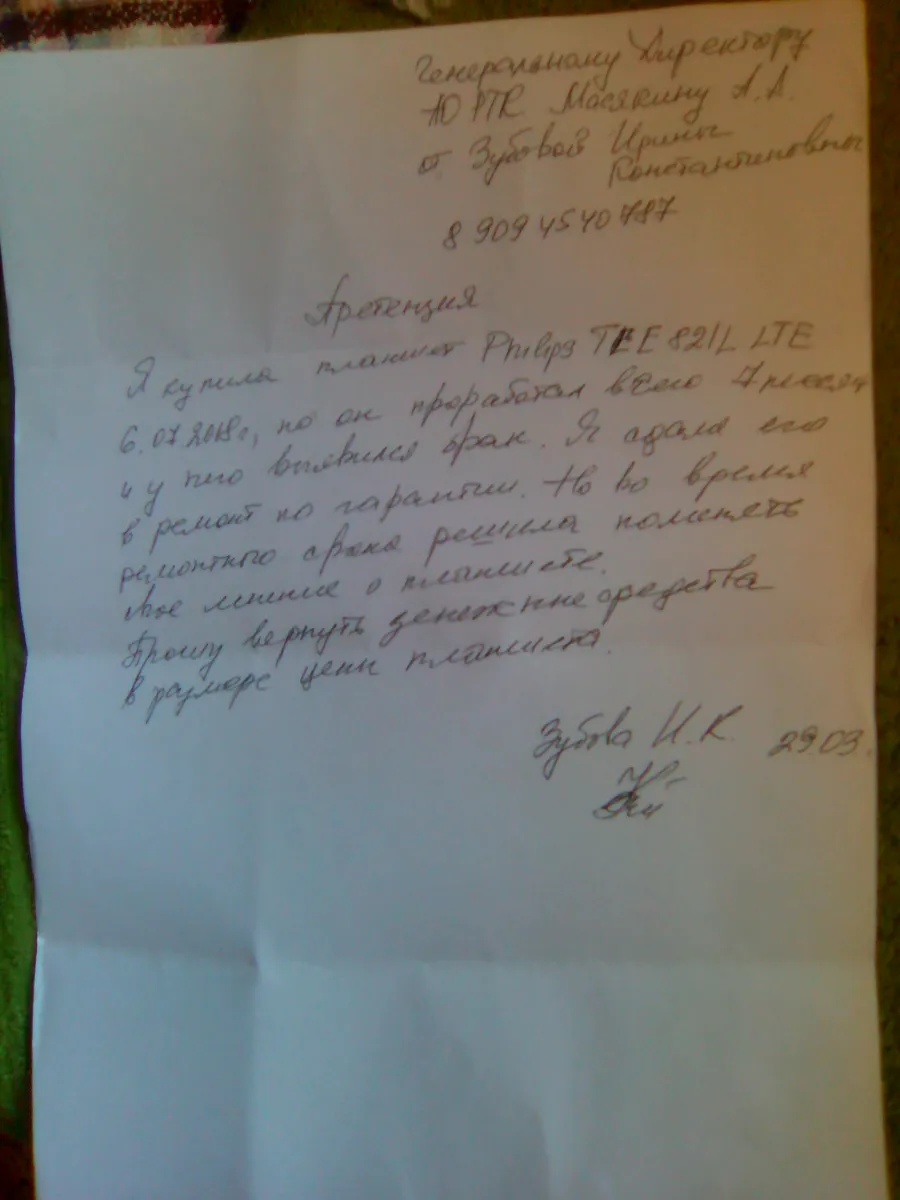 Генеральному Директору
АО РТК Масякину А.А.
от Зубовой Ирины
Константиновны
8 909 4540787
Претензия
Я купила планшет Philips TLE 821L LTE
6.07.2018г, но он проработал всего 7 месяц
и у него выявился брак. Я сдала его
в ремонт по гарантии. Но во время
ремонтного срока решила поменять
мнение о планшете.
Прошу вернуть денежные средства
в размере цены планшета.
Зубова И.К. 29.03.